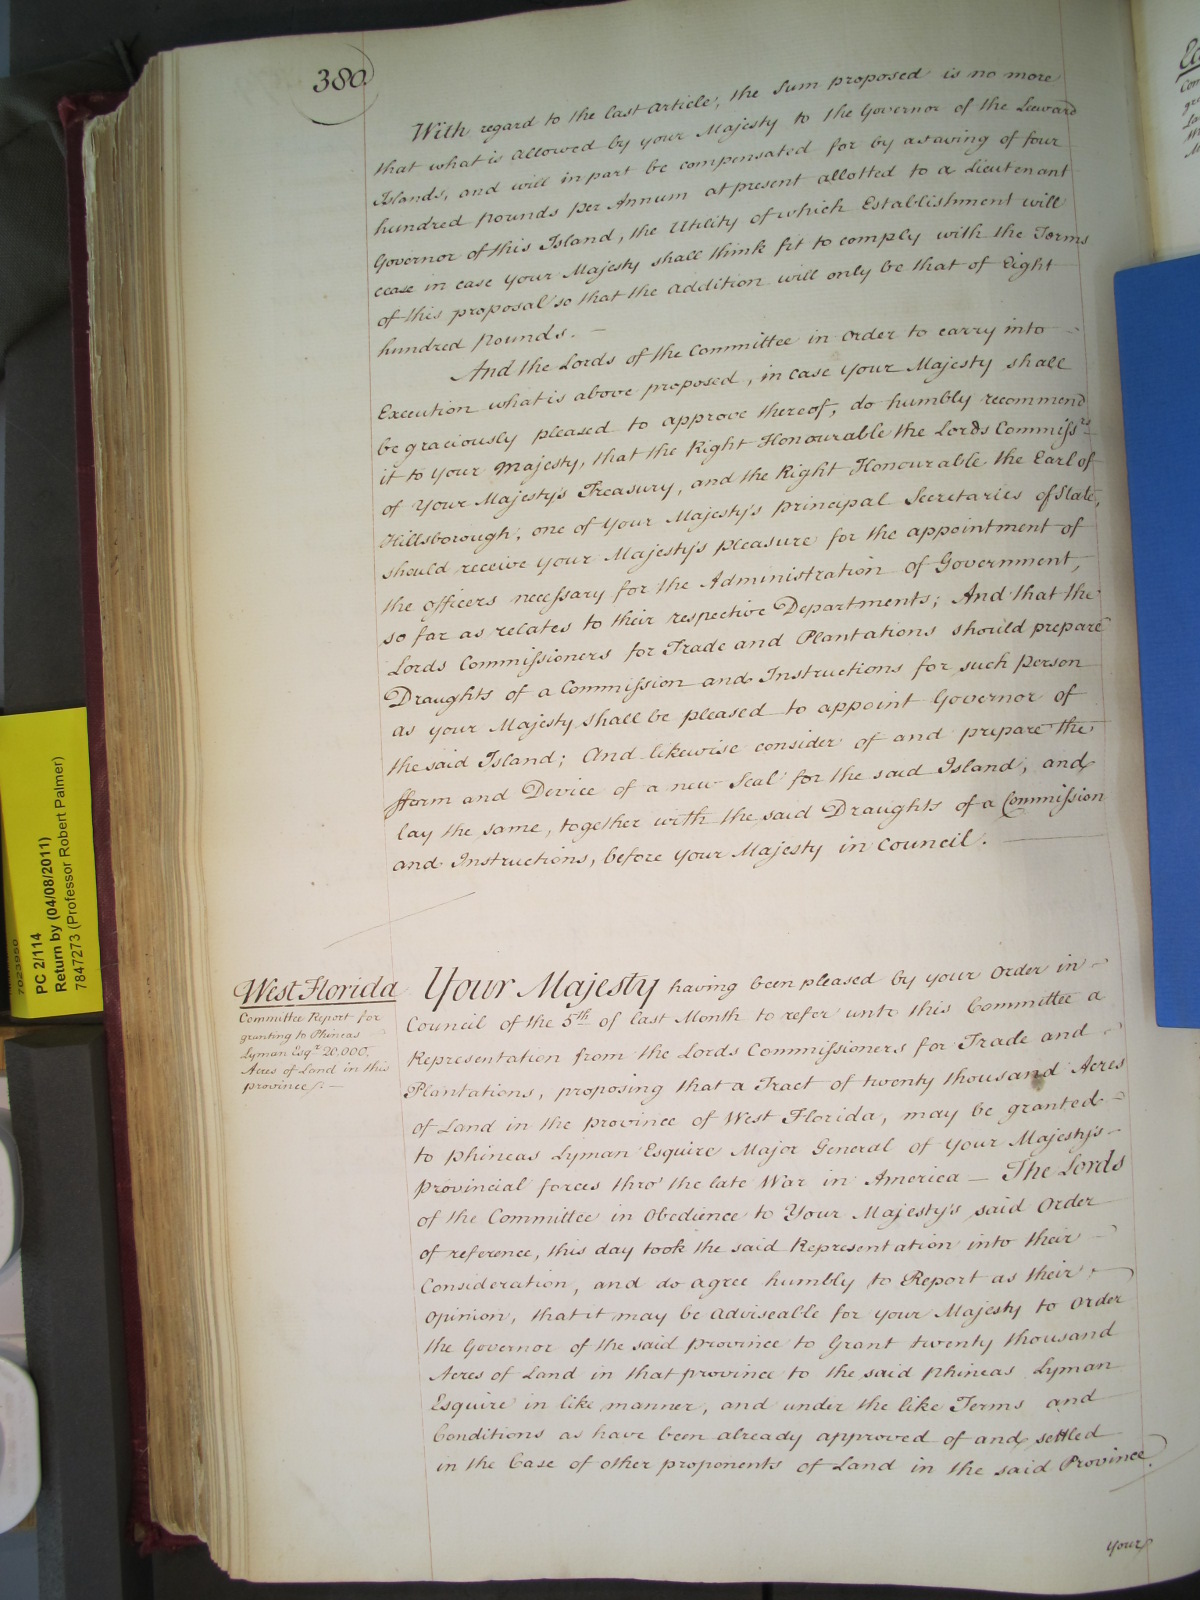 380.
With regard to the last Article, the Sum proposed is no more
that what is allowed by your Majesty to the Governor of the Leeward
Islands, and will in part be compensated for by a saving of four
hundred Pounds Per Annum at present allotted to a Lieutenant
Governor of this Island, the Utility of which Establishment will
cease in case your Majesty shall think fit to comply with the Terms
of this proposal so that the addition will only be that of Eight
hundred Pounds. —
And the Lords of the Committee in order to carry into
Execution what is above proposed, in case your Majesty shall
be graciously pleased to approve thereof, do humbly recommend
it to your Majesty, that the Right Honourable the Lords Commissrs.
of Your Majesty's Treasury, and the Right Honourable the Earl of
Hillsborough, one of your Majesty's principal Secretaries of State,
should receive your Majesty's pleasure for the appointment of
the officers necessary for the Administration of Government,
so far as relates to their respective Departments; And that the
Lords Commissioners for Trade and Plantations should prepare
Draughts of a Commission and Instructions for such person
as your Majesty shall be pleased to appoint Governor of
the said Island; And likewise consider of and prepare the
fform and Device of a new Seal for the said Island, and
lay the same, together with the said Draughts of a Commission
and Instructions, before your Majesty in Council.
West Florida
Committee Report for
granting to Phineas
Lyman Esqr. 20,000.
Acres of Land in this
province. —
Your Majesty having been pleased by your order in
Council of the 5th of last Month to refer unto this Committee a
Representation from the Lords Commissioners for Trade and
Plantations, proposing that a Tract of twenty thousand Acres
of Land in the province of West Florida, may be granted
to Phineas Lyman Esquire Major General of your Majesty's
provincial forces thro' the late War in America — The Lords
of the Committee in obedience to Your Majesty's said order
of reference, this day took the said Representation into their
Consideration, and do agree humbly to Report as their
opinion, that it may be adviseable for your Majesty to order
the Governor of the said province to Grant twenty thousand
Acres of Land in that province to the said Phineas Lyman
Esquire in like manner, and under the like Terms and
Conditions as have been already approved of and settled
in the Case of other proponents of Land in the said Province.
your
7023950
PC 2/114
Return by (04/08/2011)
7847273 (Professor Robert Palmer)